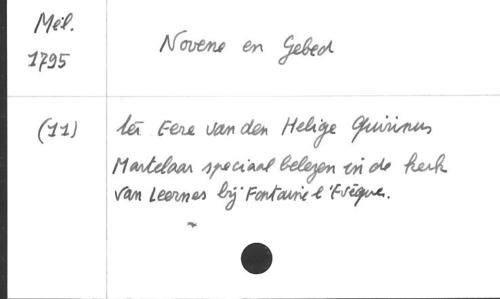 Mél.
1795
Novene en Gebed
(11)
ter Eere van den Helige Quirinus
Martelaar speciaal belezen in de kerk
van Leernes bij Fontaine l'Evêque.